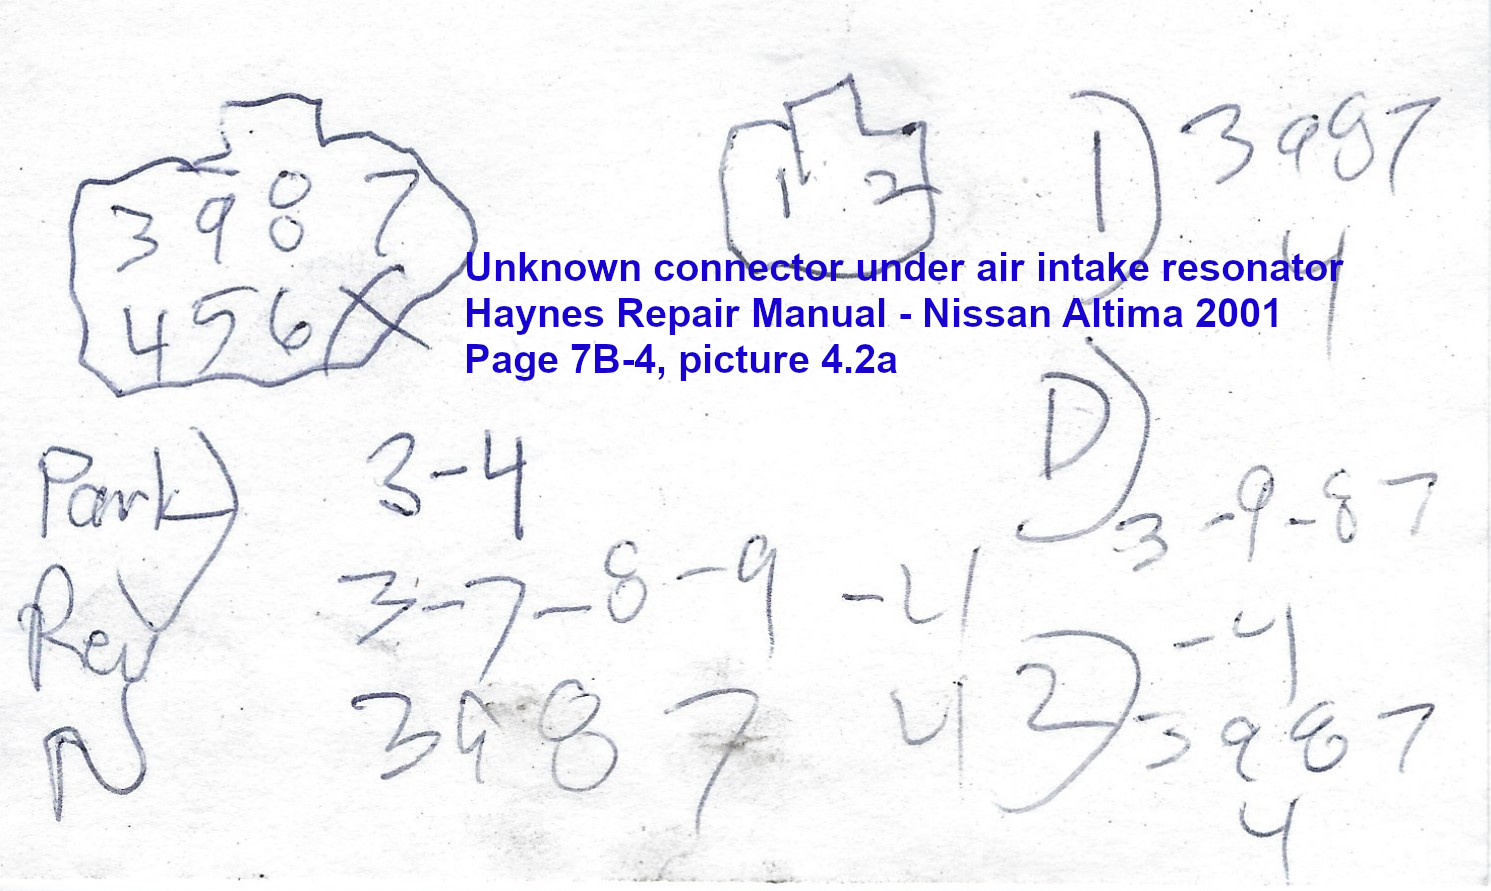 3 9 8 7
4 5 6 X
1 2
1) 3 9 8 7
4
Unknown connector under air intake resonator
Haynes Repair Manual - Nissan Altima 2001
Page 7B-4, picture 4.2a
Park) 3-4
Rev 3-7-8-9 -4
N 3 9 8 7 4
D) 3-9-8 7
-4
2) 3 9 8 7
4